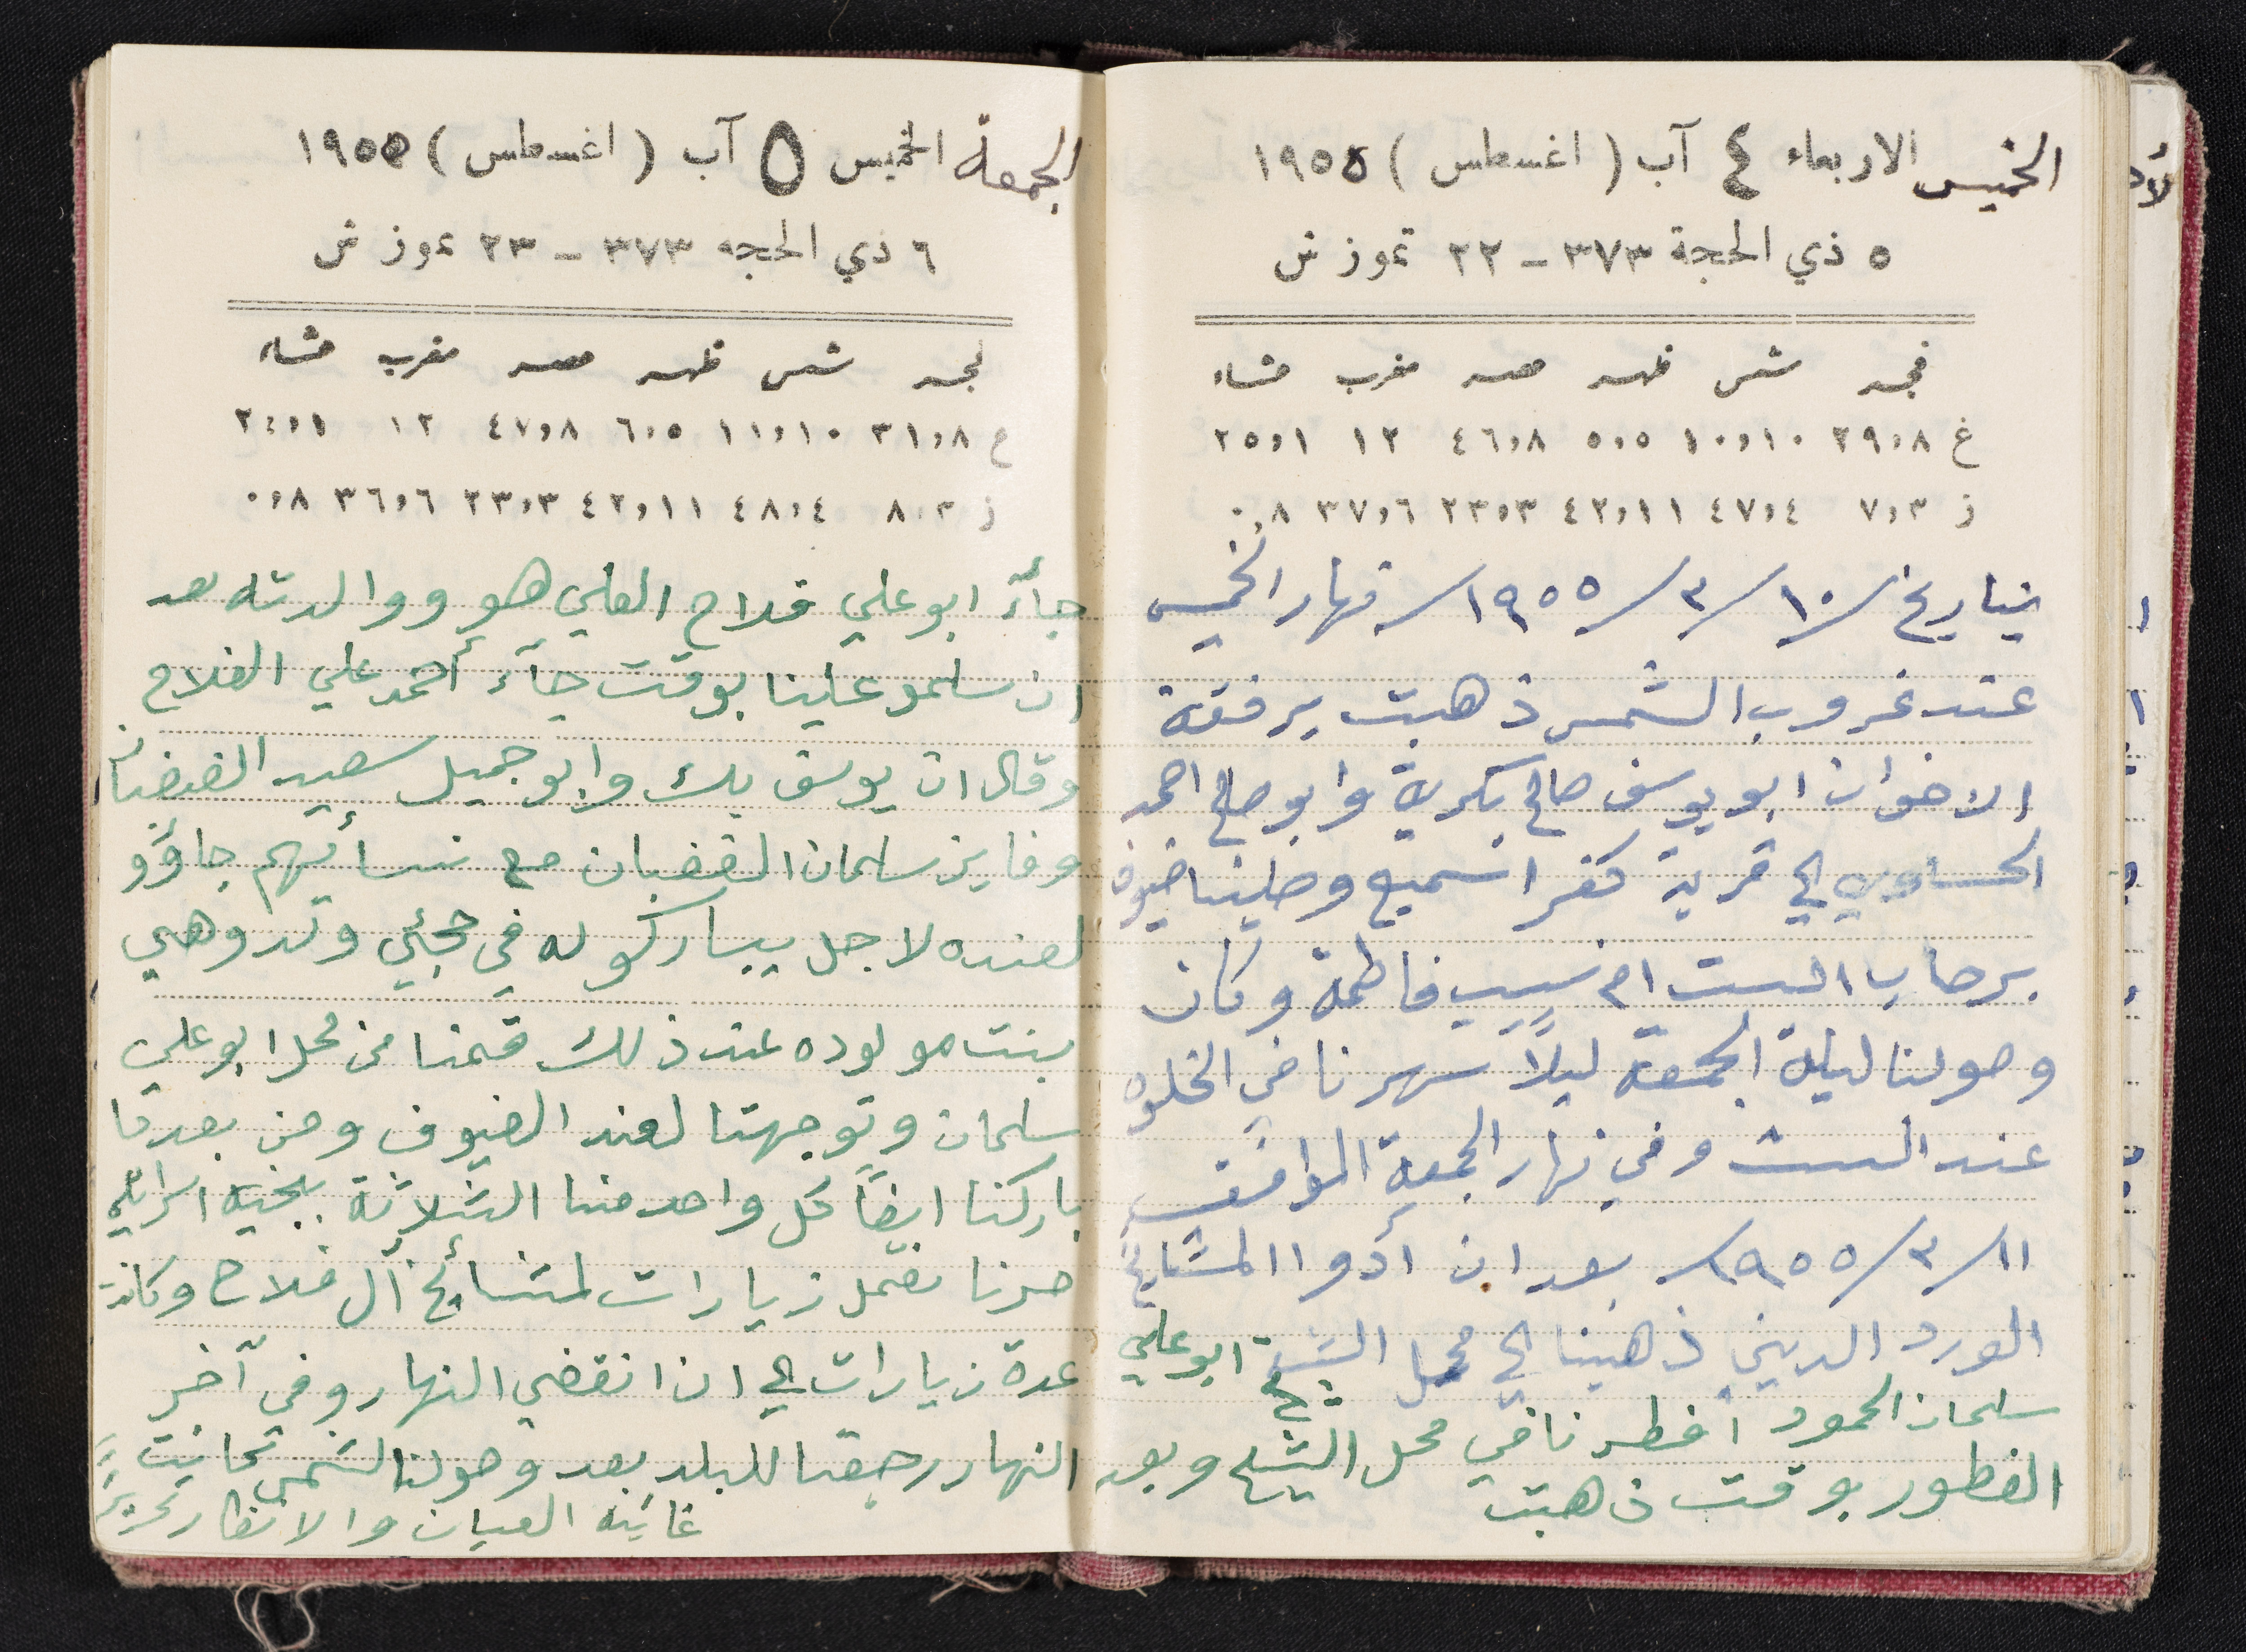 الخميس الاربعاء ٤ آب ( اغسطس ) ١٩٥٥
٥ ذي الحجة ٣٧٣ - ٢٢ تموز ش
فجر شمس ظهر عصر مغرب عشاء
غ ٢٩،٨ ١٠،١٠ ٥،٥ ٤٦،٨ ١٢ ٢٥،١
ز ٧،٣ ٤٧،٤ ٤٢،١١ ٢٣،٣ ٣٧،٦ ٠،٨
بتاريخ /١٠/٣/١٩٥٥/ نهار الخميس
عند غروب الشمس ذهبت برفقة
الاخوان ابو يوسف صالح بكرية وابو صالح احمد
الحساوي الي قرية كفر اسميع وصلينا ضيوف
برحاب الست ام نسيب فاطمة وكان
وصولنا ليلة الجمعة ليلاً سهرنا في الخلوه
عند الست وفي نهار الجمعة الموافق
١١/٣/١٩٥٥/ بعد ان أدوا المشايخ
الورد الديني ذهبنا الي محل الشيخ ابو علي
سلمان الحمود افطرنا في محل الشيخ وبعد
الفطور بوقت ذهبت
الجمعة الخميس ٥ آب ( اغسطس ) ١٩٥٥
٦ ذي الحجه ٣٧٣ - ٢٣ تموز ش
فجر شمس ظهر عصر مغرب عشاء
غ ٣١،٨ ١١،١٠ ٦،٥ ٤٧،٨ ١٢ ٢٤،١
ز ٨،٣ ٤٨،٤ ٤٢،١١ ٢٣،٣ ٣٦،٦ ٠،٨
جآء ابو علي فلاح العلي هو ووالدته بعد
ان سلمو علينا بوقت جآء أحمد علي الفلاح
وقال ان يوسف بك وابو جميل سعيد الغضبان
وفايز سلمان الغضبان مع نسائهم جاؤو
لعنده لاجل يباركو له في مجئي ولد وهي
بنت مولوده عند ذلك قمنا من محل ابو علي
سلمان وتوجهنا لعند الضيوف ومن بعدما
باركنا ايضاً كل واحد منا الثلاثة بجنيه اسرائيلي
صرنا نعمل زيارات لمشائخ آل فلاح وكانت
عدة زيارات الي ان انقضي النهار وفي آخر
النهار رجعنا للبلد بعد وصولنا الشمس كانت
غائبه العيان والانظار